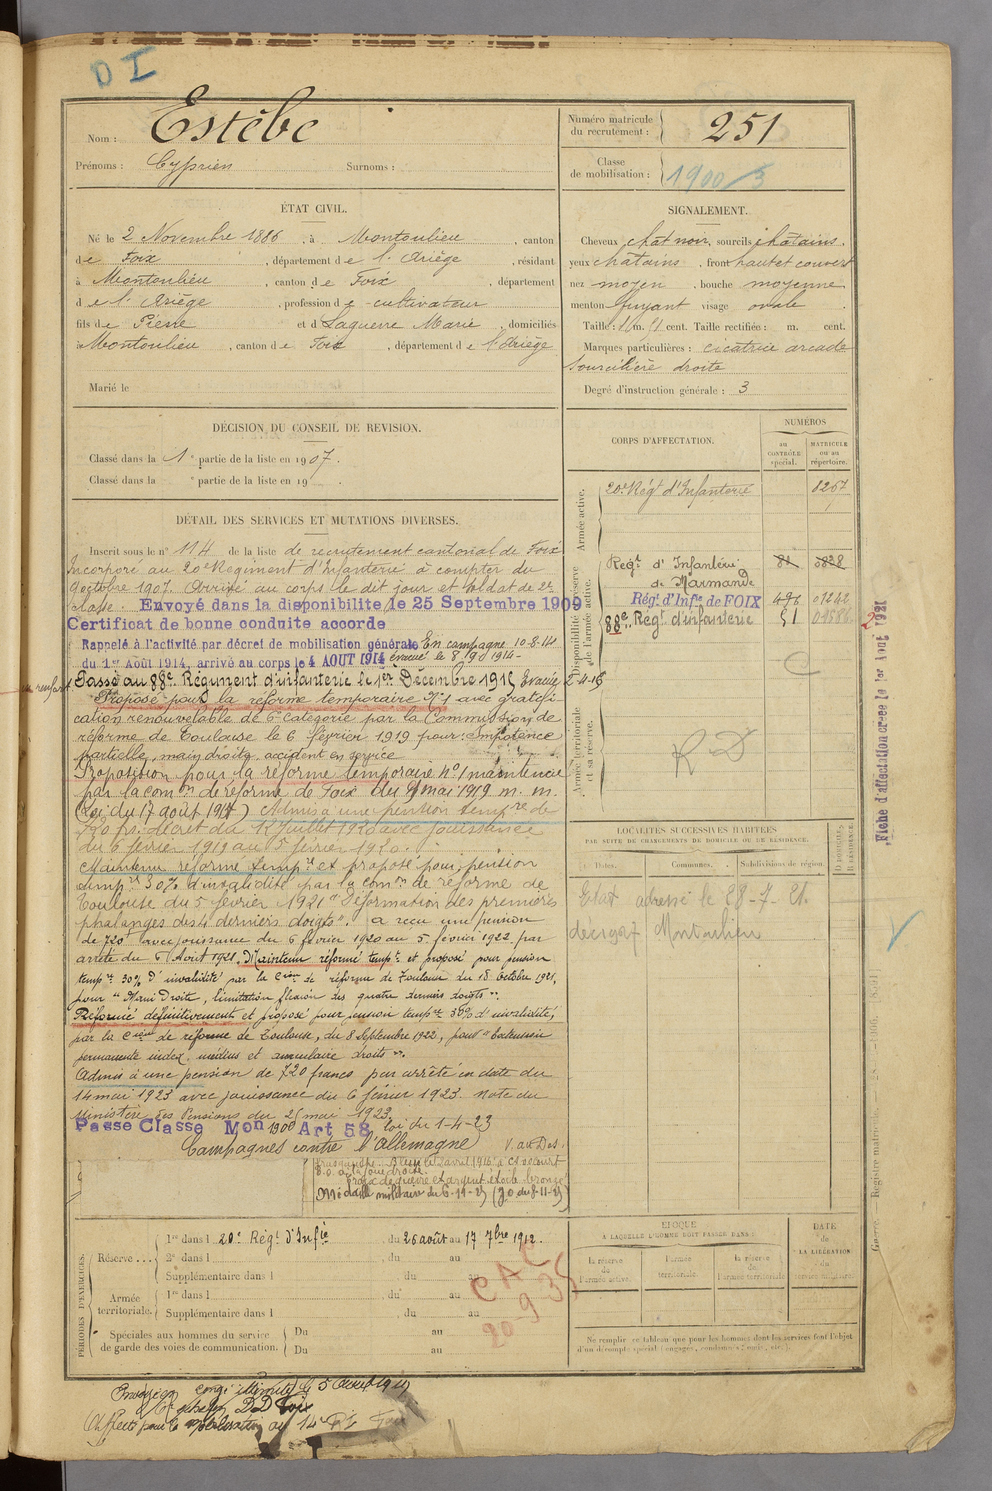 D I
Nom : Estèbe
Prénoms : Cyprien Surnoms :
Numéro matricule du recrutement : 251
Classe de mobilisation : 1900/3
ÉTAT CIVIL.
Né le 2 Novembre 1886, à Montoulieu, canton
de Foix, département de l'Ariège, résidant
à Montoulieu, canton de Foix, département
de l'Ariège, profession de cultivateur
fils de Pierre et d Laguerre Marie, domiciliés
à Montoulieu, canton de Foix, département de l'Ariège
Marié le
SIGNALEMENT.
Cheveux chat noir, sourcils chatains.
yeux chatains, front haut et couvert
nez moyen, bouche moyenne
menton fuyant visage ovale
Taille : 1 m. 51 cent. Taille rectifiée : m. cent.
Marques particulières : cicatrice arcade
sourcilière droite
Degré d'instruction générale : 3
DÉCISION DU CONSEIL DE REVISION.
Classé dans la 1e partie de la liste en 1907.
Classé dans la e partie de la liste en 19
CORPS D'AFFECTATION.
NUMÉROS
au CONTRÔLE spécial.
MATRICULE ou au répertoire.
Armée active.
20e Régt d'Infanterie 8267
Disponibilité et réserve de l'armée active.
Regt d'Infanterie 81 3838
de Marmande
Régt d'Infie de FOIX 496 01242
88e Régt d'infanterie 51
Armée territoriale et sa réserve.
R D
DÉTAIL DES SERVICES ET MUTATIONS DIVERSES.
Inscrit sous le n° 114 de la liste de recrutement cantonal de Foix
Incorporé au 20e Régiment d'Infanterie à compter du
9 octobre 1907. Arrivé au corps le dit jour et soldat de 2e
classe. Envoyé dans la disponibilité le 25 Septembre 1909
Certificat de bonne conduite accordé
Rappelé à l'activité par décret de mobilisation générale En campagne 10-8-14
du 1er Août 1914, arrivé au corps le 4 AOUT 1914 évacué le 8/9bre 1914-
Passé au 88e Régiment d'infanterie le 1er Décembre 1915 Evacué 2-4-16
Proposé pour la réforme temporaire N°1 avec gratifi-
cation renouvelable de 6e catégorie par la Commission de
réforme de Toulouse le 6 février 1919 pour : Impotence
partielle, main droite, accident en service
Proposition pour la réforme temporaire n°1 maintenue
par la comon de réforme de Foix du 9 mai 1919 m. m.
(Loi du 17 août 1914) Admis à une pension tempre de
720 frs. décret du 12 juillet 1920 avec jouissance
du 6 février 1919 au 5 février 1920.
Maintenu réformé tempre et proposé pour pension
tempre 30% d'invalidité par la comon de réforme de
Toulouse du 5 février 1921 "Déformation des premières
phalanges des 4 derniers doigts". a reçu une pension
de 720f avec jouissance du 6 février 1920 au 5 février 1922 par
arrêté du 6 Août 1921. Maintenu réformé tempre et proposé pour pension
tempre 30% d'invalidité par la Cion de réforme de Toulouse du 18 octobre 1921,
pour "Main Droite, limitation flexion des quatre derniers doigts".
Réformé définitivement et proposé pour pension tempre 30% d'invalidité,
par la Cion de réforme de Toulouse, du 8 Septembre 1922, pour "Extension
permanente index, médius et annulaire droits".
Admis à une pension de 720 francs par arrêté en date du
14 mai 1923 avec jouissance du 6 février 1923. Note du
Ministère des Pensions du 25 mai 1923.
Passé Classe Mon 1900 Art 58 loi du 1-4-23
Campagnes contre l'Allemagne V. au Dos.
Croix de guerre et argent étoile bronze
Médaille militaire du 6-11-25 (J.O du 8-11-25)
LOCALITÉS SUCCESSIVES HABITÉES
PAR SUITE DE CHANGEMENTS DE DOMICILE OU DE RÉSIDENCE.
Dates. Communes. Subdivisions de région. D DOMICILE. R RÉSIDENCE.
Etat adressé le 28-7-21.
Montoulieu
Fiche d'affectation créée le 1er Août 1921
PÉRIODES D'EXERCICES.
Réserve . . .
1re dans l 20e Régt d'Infie, du 26 août au 17 7bre 1912.
2e dans l , du au
Supplémentaire dans l , du au
Armée territoriale.
1re dans l , du au
Supplémentaire dans l , du au
Spéciales aux hommes du service de garde des voies de communication.
Du au
Du au
C A C
20-9-35
ÉPOQUE
À LAQUELLE L'HOMME DOIT PASSER DANS :
la réserve de l'armée active.
l'armée territoriale.
la réserve de l'armée territoriale.
DATE de LA LIBÉRATION du service militaire.
Ne remplir ce tableau que pour les hommes dont les services font l'objet
d'un décompte spécial (engagés, condamnés, omis, etc.).
Envoyé en congé illimité le 5 Avril 1919
DD Foix
Affecté pour la mobilisation au 14e